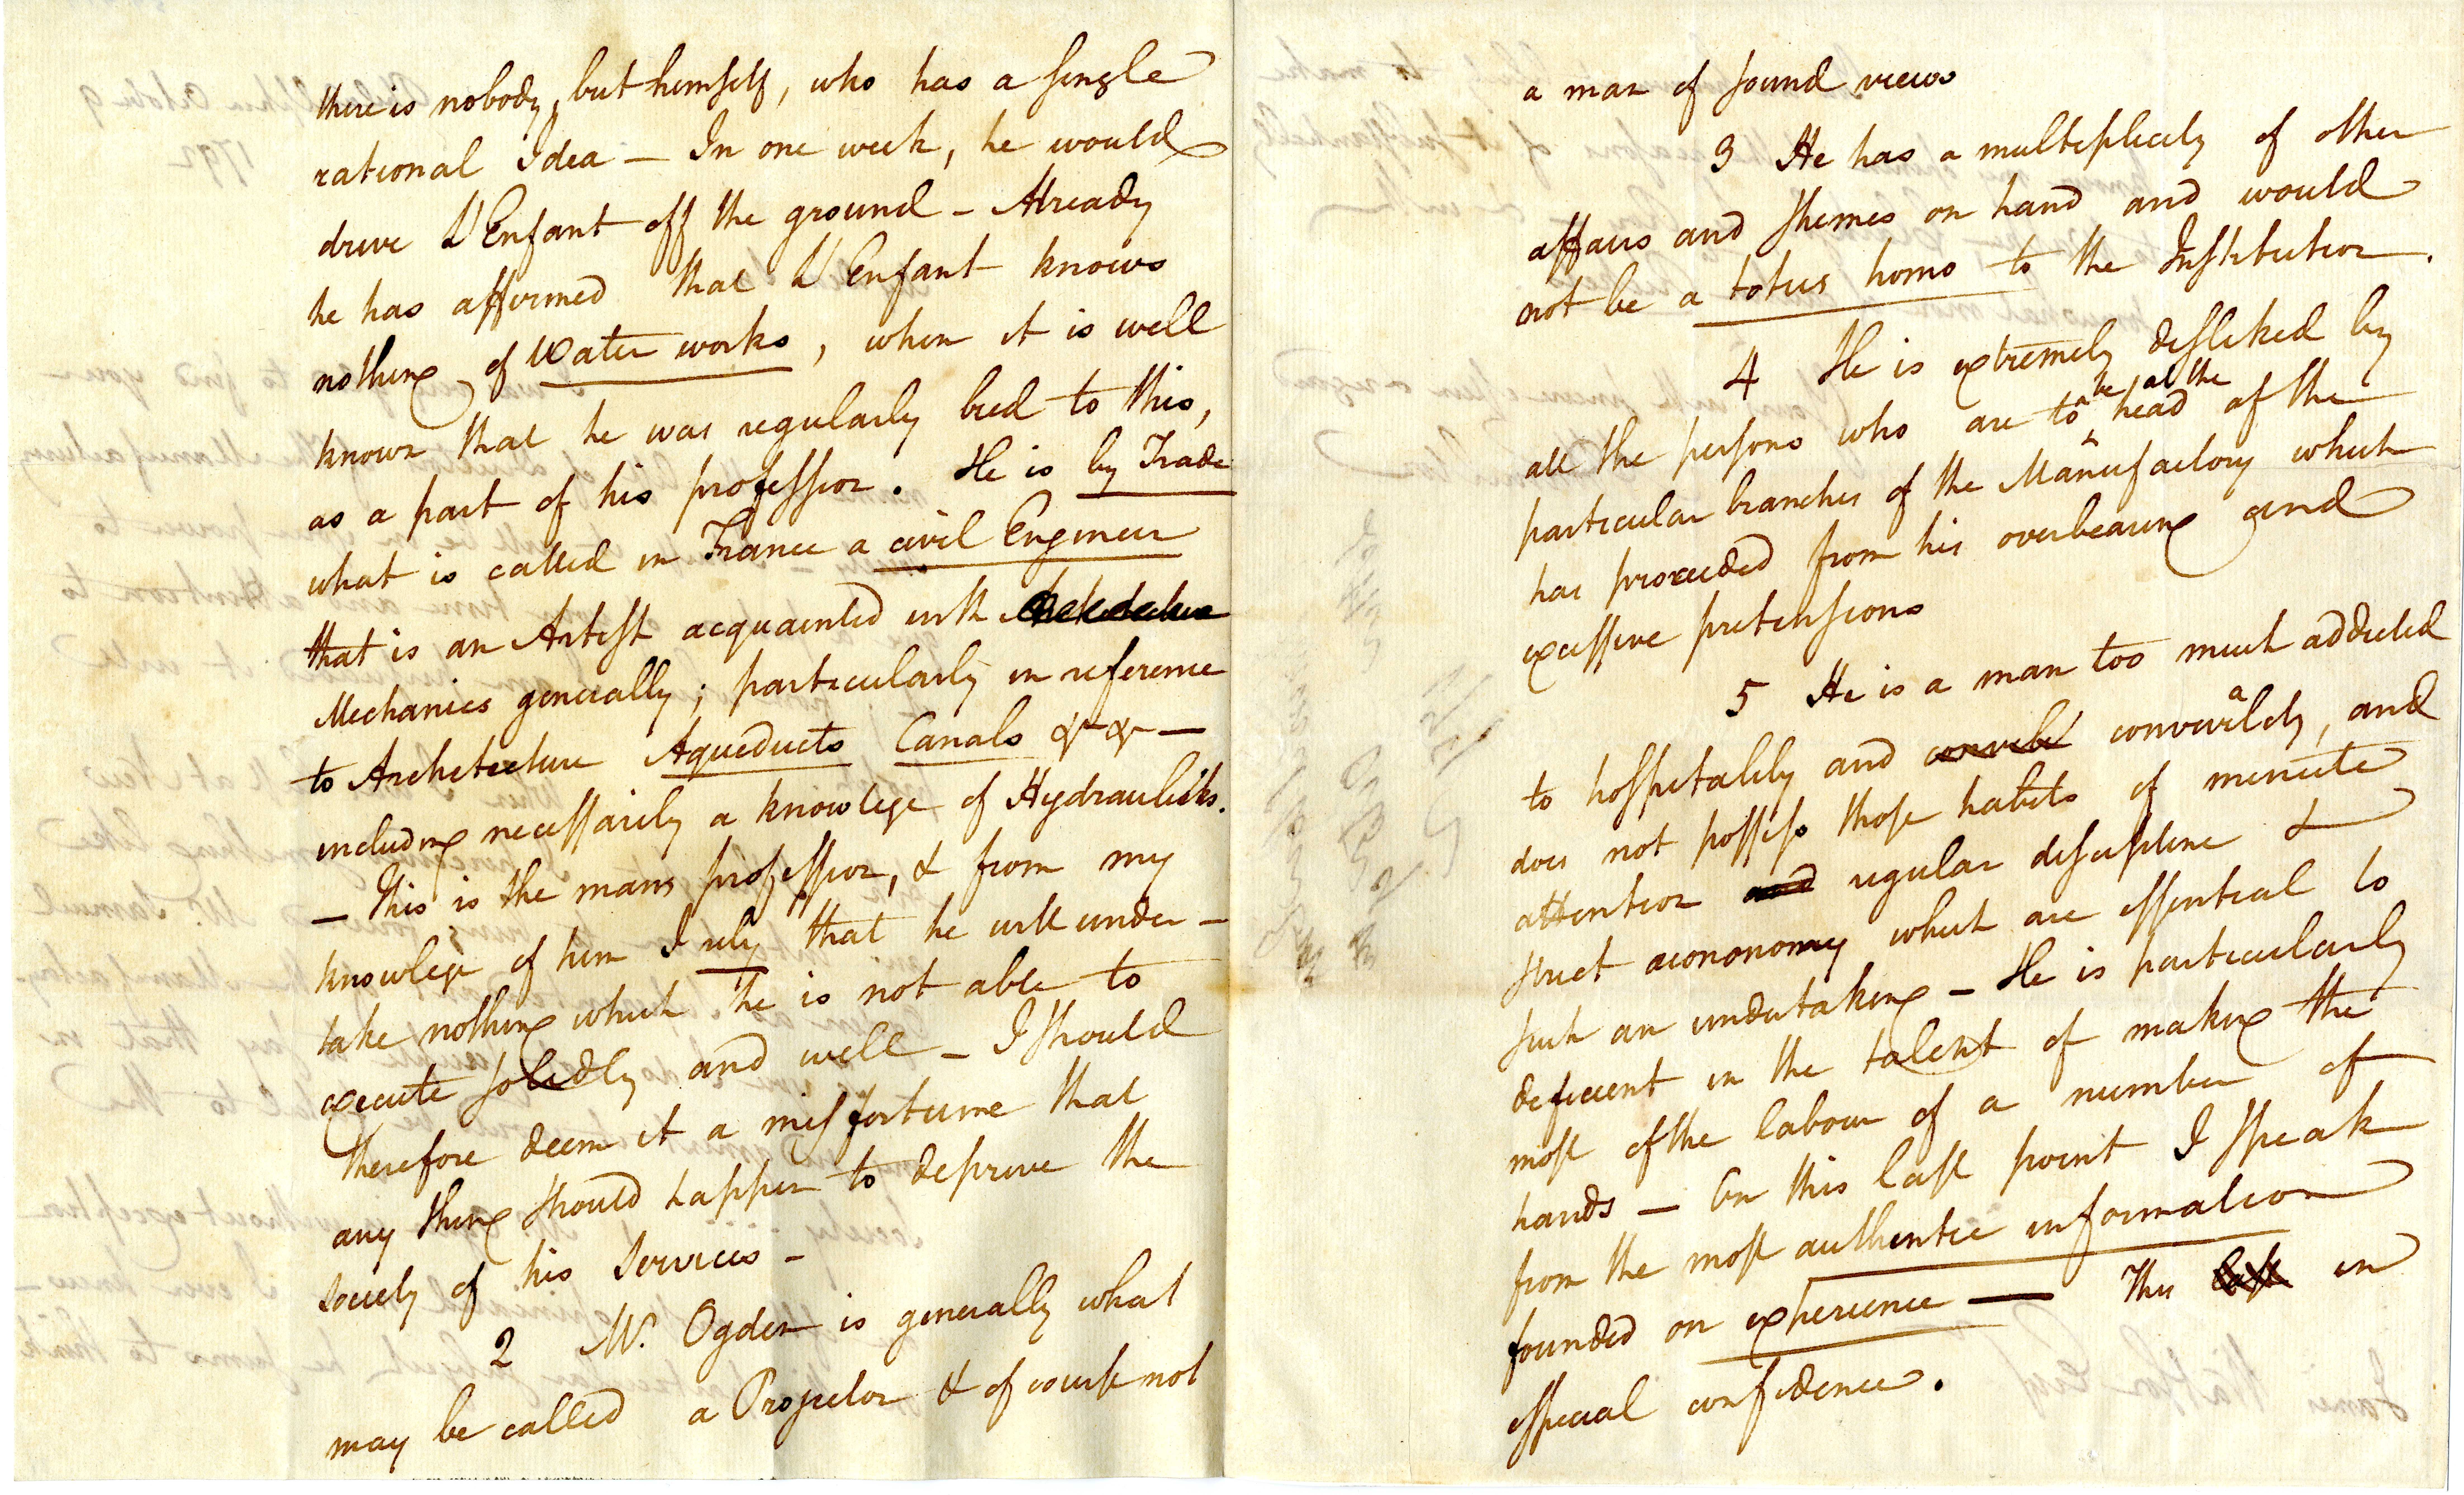 there is nobody, but himself, who has a single
rational Idea — In one week, he would
drive L'Enfant off the ground — Already
he has affirmed that L'Enfant knows
nothing of Water works, when it is well
known that he was regularly bred to this,
as a part of his profession. He is by Trade
what is called in France a civil Engineer
that is an Artist acquainted with Architecture
Mechanics generally; particularly in reference
to Architecture Aqueducts Canals &c &c —
including necessarily a knowlege of Hydraulicks.
— This is the mans profession, & from my
knowlege of him I rely that he will under–
take nothing which he is not able to
execute solidly and well — I should
therefore deem it a misfortune that
any thing should happen to deprive the
society of his services —
2 Mr. Ogden is generally what
may be called a Projector & of course not
a man of sound views
3 He has a multiplicity of other
affairs and shemes on hand and would
not be a totus homo to the Institution.
4 He is extremely disliked by
all the persons who are to be at the head of the
particular branches of the Manufactory which
has proceeded from his overbearing and
excessive pretensions
5 He is a man too much addicted
to hospitality and convivi convivialdy, and
does not possess those habits of minute
attention and regular discipline &
strict aconononomy which are essential to
such an undertaking — He is particularly
deficient in the talent of making the
most of the labour of a number of
hands — On this last point I speak
from the most authentic information
founded on experience — This last in
especial confidence.